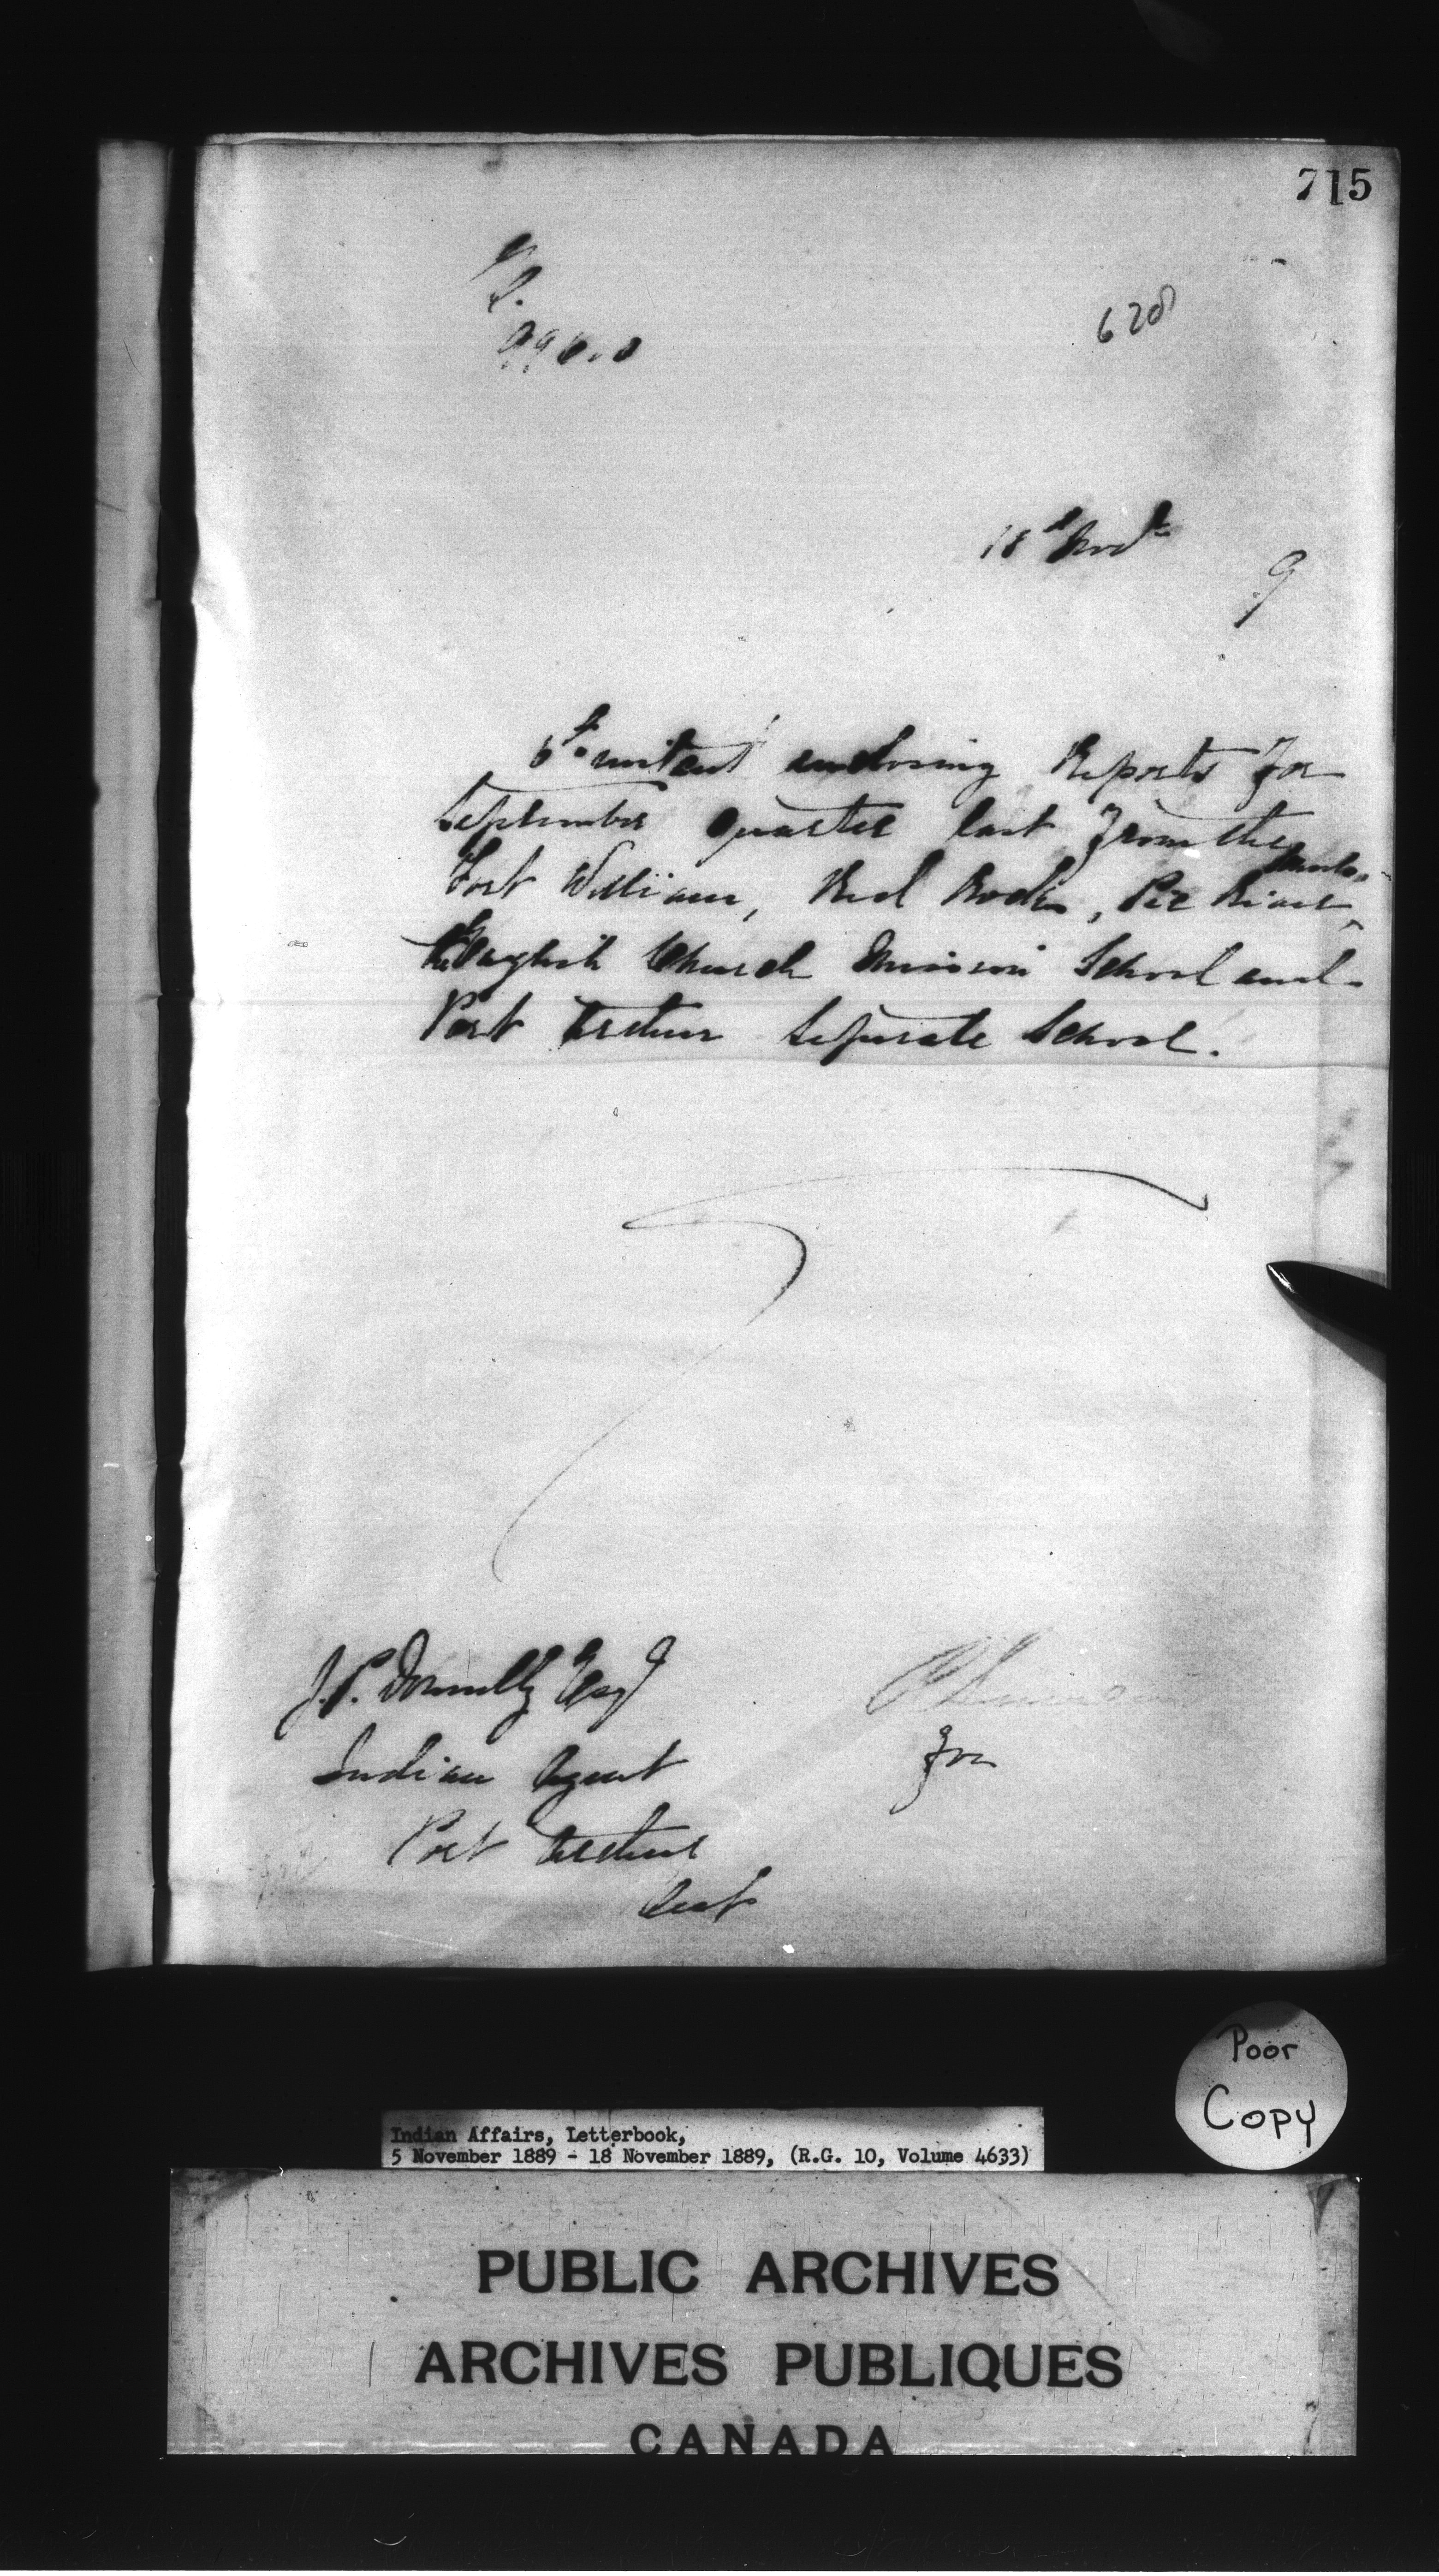 715
628
18th Novr
9
6th instant enclosing Reports for
September Quarter last from the
Fort William, Red Rock, Pic River Schools,
the English Church Mission School and
Port Arthur Separate School.
J.P. Donnelly Esqr
for
Indian Agent
Port Arthur
Ont
Poor
Copy
Indian Affairs, Letterbook,
5 November 1889 - 18 November 1889, (R.G. 10, Volume 4633)
PUBLIC ARCHIVES
ARCHIVES PUBLIQUES
CANADA